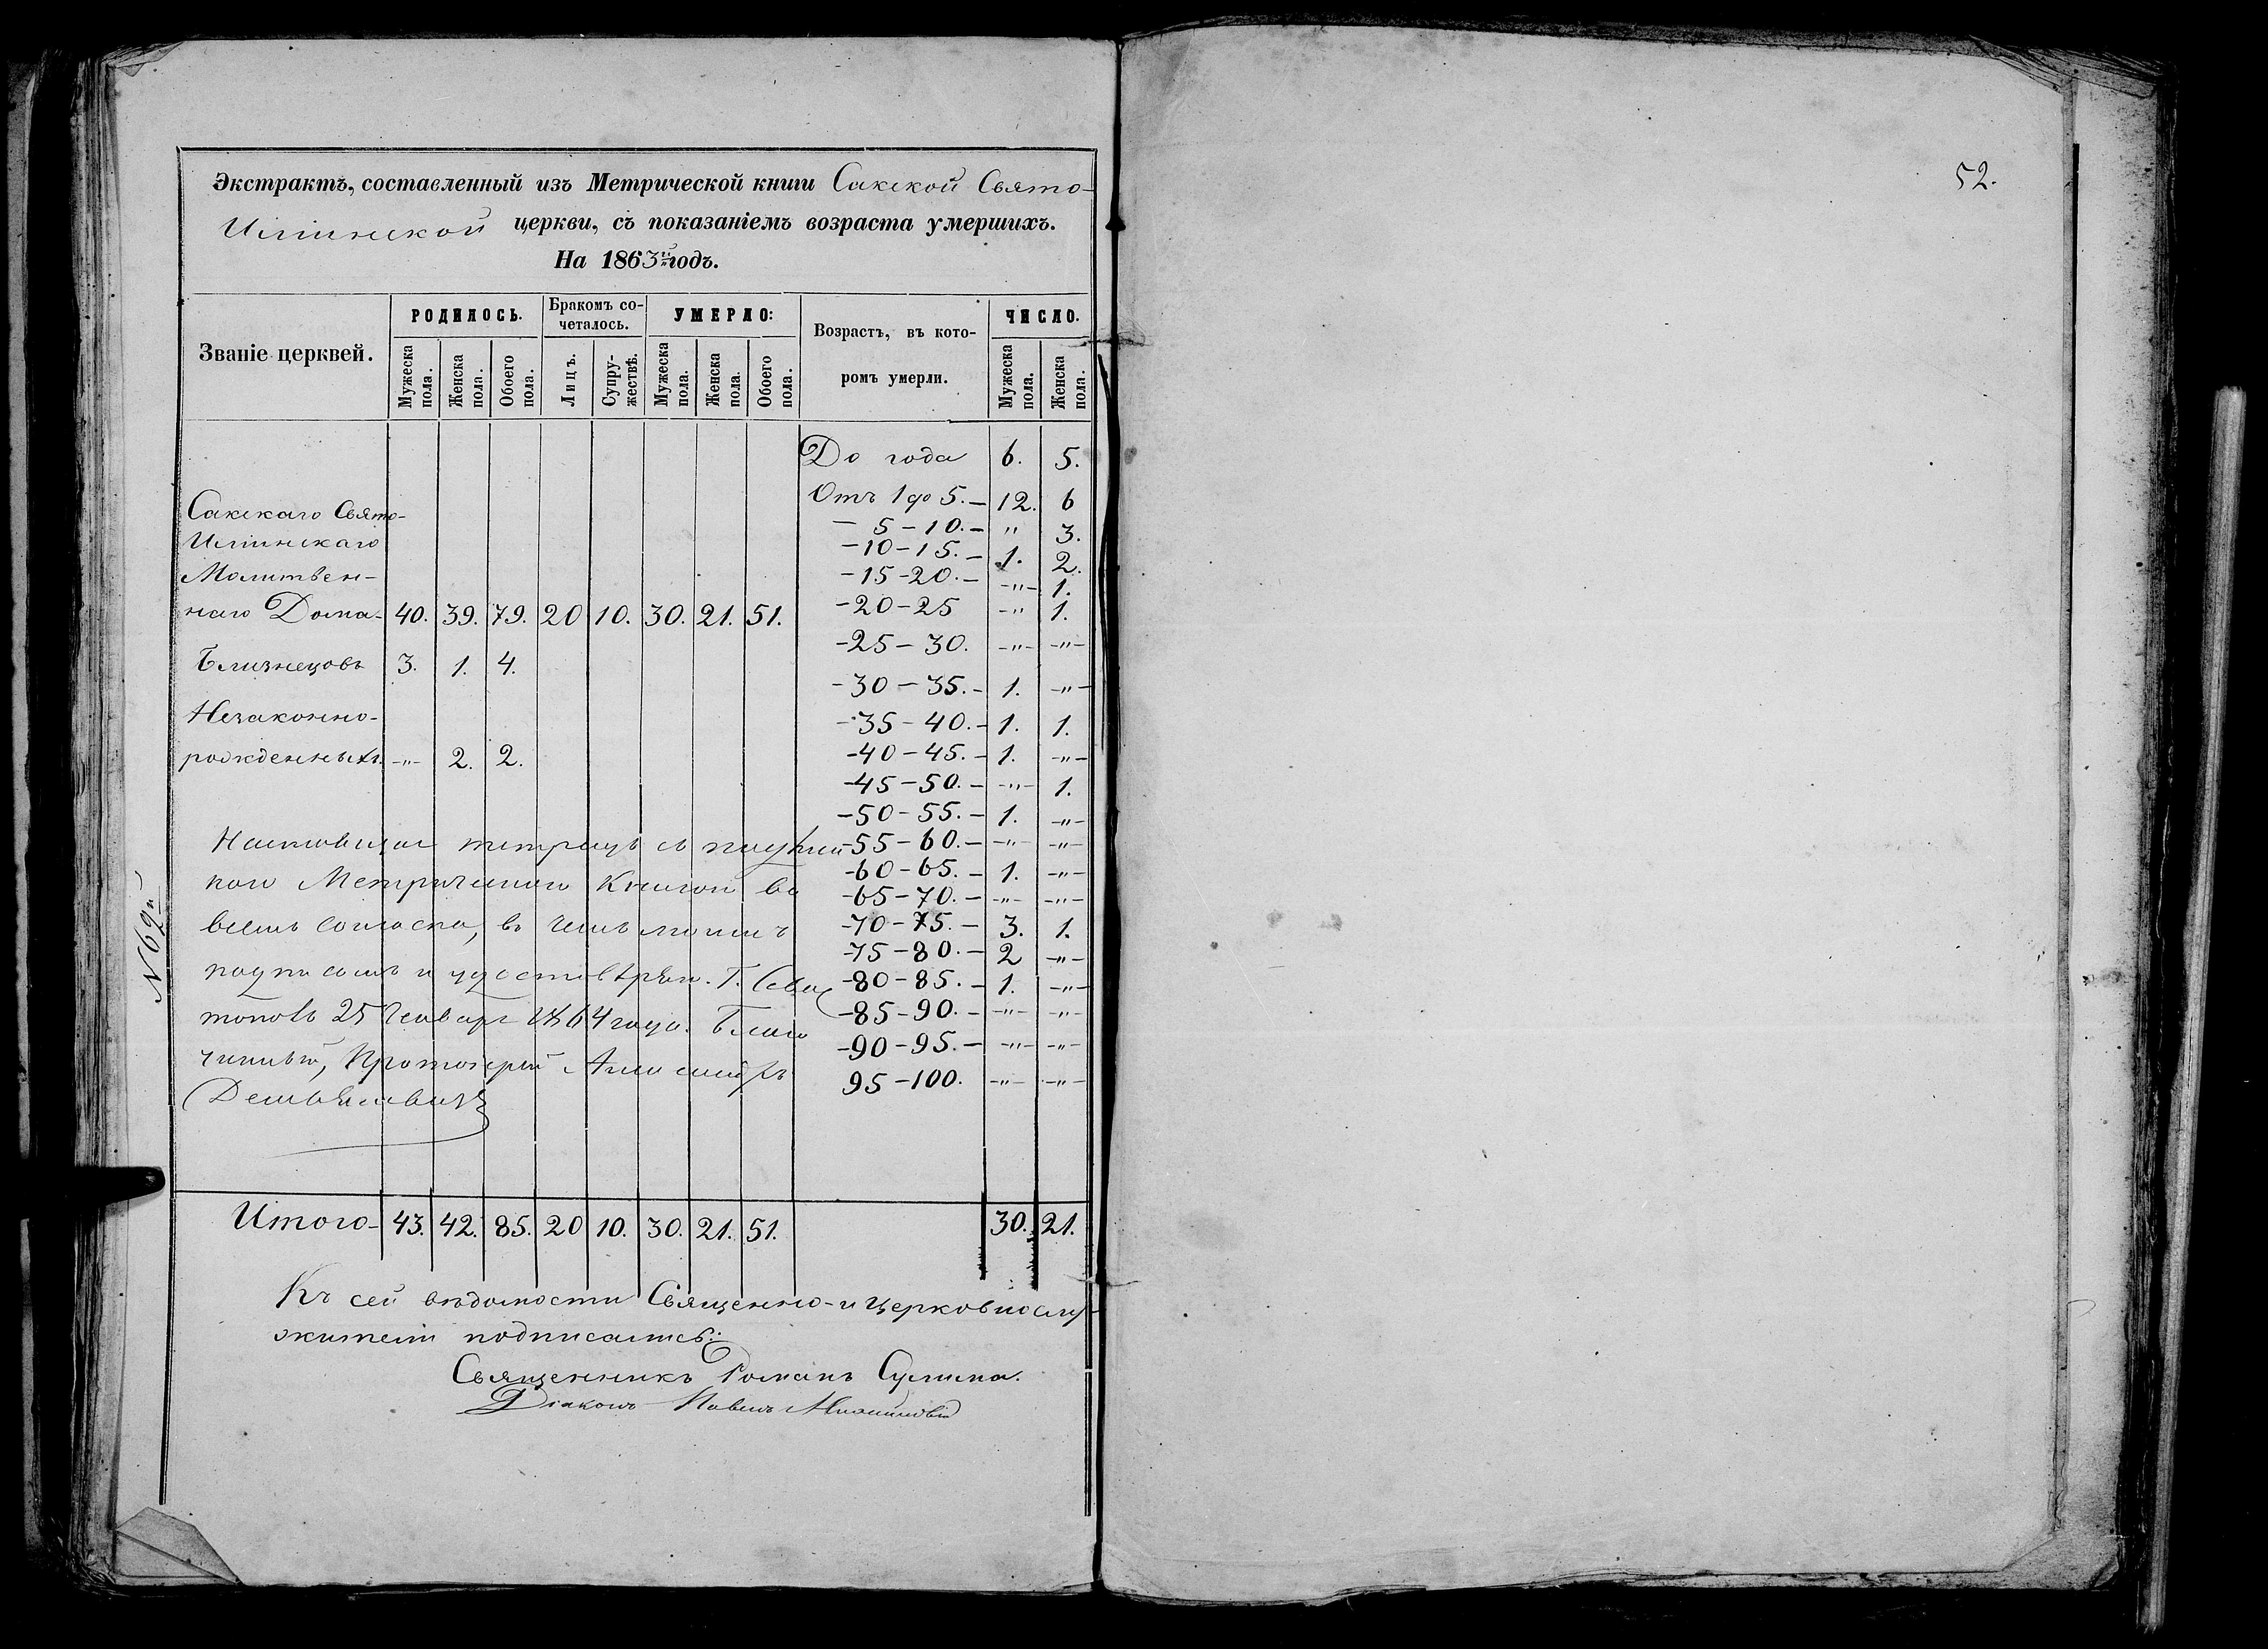 Экстрактъ, составленный изъ Метрической книги Сакской Свято-
Ильинской церкви, съ показаніемъ возраста умершихъ.
На 1863й годъ.
Званіе церквей.
РОДИЛОСЬ.
Бракомъ со-
четалось.
УМЕРЛО:
Возрастъ, въ кото-
ромъ умерли.
ЧИСЛО.
Мужеска пола.
Женска пола.
Обоего пола.
Лицъ.
Супру-
жествъ.
Мужеска пола.
Женска пола.
Обоего пола.
Мужеска пола.
Женска пола.
До года 6. 5.
Отъ 1 до 5.– 12. 6
– 5–10.– " 3.
–10–15.– 1. 2.
–15–20.– –"– 1.
–20–25 –" 1.
–25–30. –"– –"–
–30–35.– 1. –"–
–35–40.– 1. 1.
–40–45.– 1. –"–
–45–50.– –"– 1.
–50–55.– 1. –"–
–55–60.– –"– –"–
–60–65.– 1. –"–
–65–70.– –"– –"–
–70–75.– 3. 1.
–75–80.– 2 –"–
–80–85.– 1. –"–
–85–90.– –"– –"–
–90–95.– –"– –"–
95–100. –"– –"–
Сакскаго Свято-
Ильинскаго
Молитвен-
наго Дома- 40. 39. 79. 20 10. 30. 21. 51.
Близнецовъ 3. 1. 4.
Незаконно-
рожденныхъ –"– 2. 2.
Настоящая тетрадь съ подлин
ною Метрическою Книгою во
всемъ согласна, въ чемъ
подписомъ и удостовѣряю. Г. Севас
тополь 25 Генваря 1864 года. Благо
чинный, Протоіерей Александръ
Демьяновичъ
N 69й
Итого- 43. 42. 85. 20 10. 30. 21. 51. 30. 21.
Къ сей вѣдомости Священно-и церковнослу-
жители подписались:
Священникъ Романъ Сулима.
Діаконъ Павелъ
52.